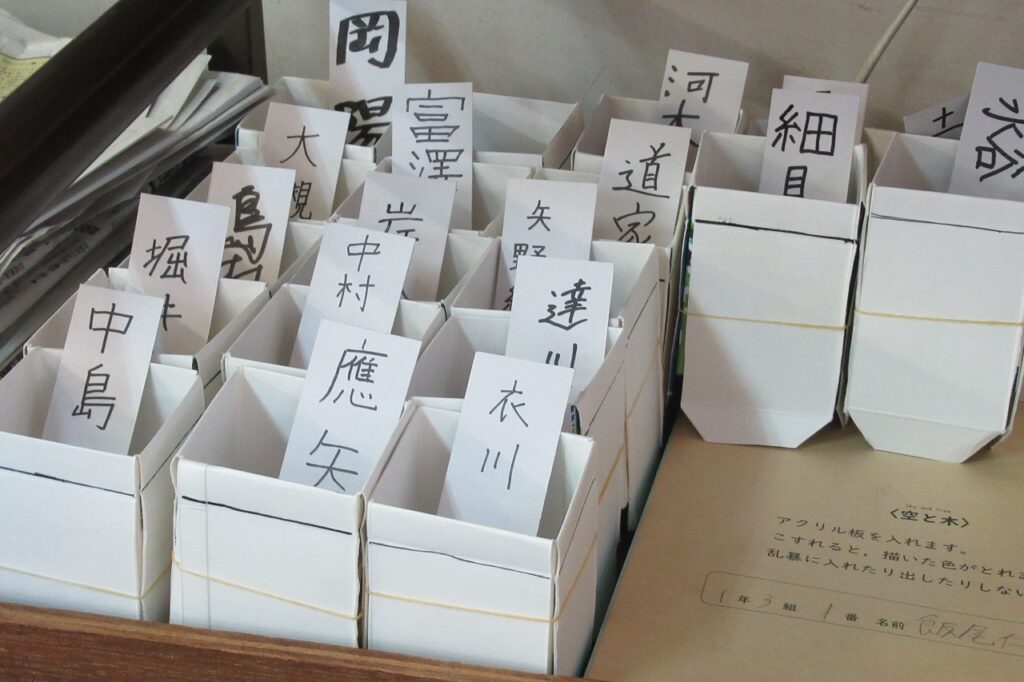 岡
大
富澤
河
細目
道家
中村
矢野
達川
堀井
中島
應矢
衣川
〈空と木〉
アクリル板を入れます。
こすれると，描いた色がとれま
乱暴に入れたり出したりしない
1年3組 1番 名前 飯尾仁